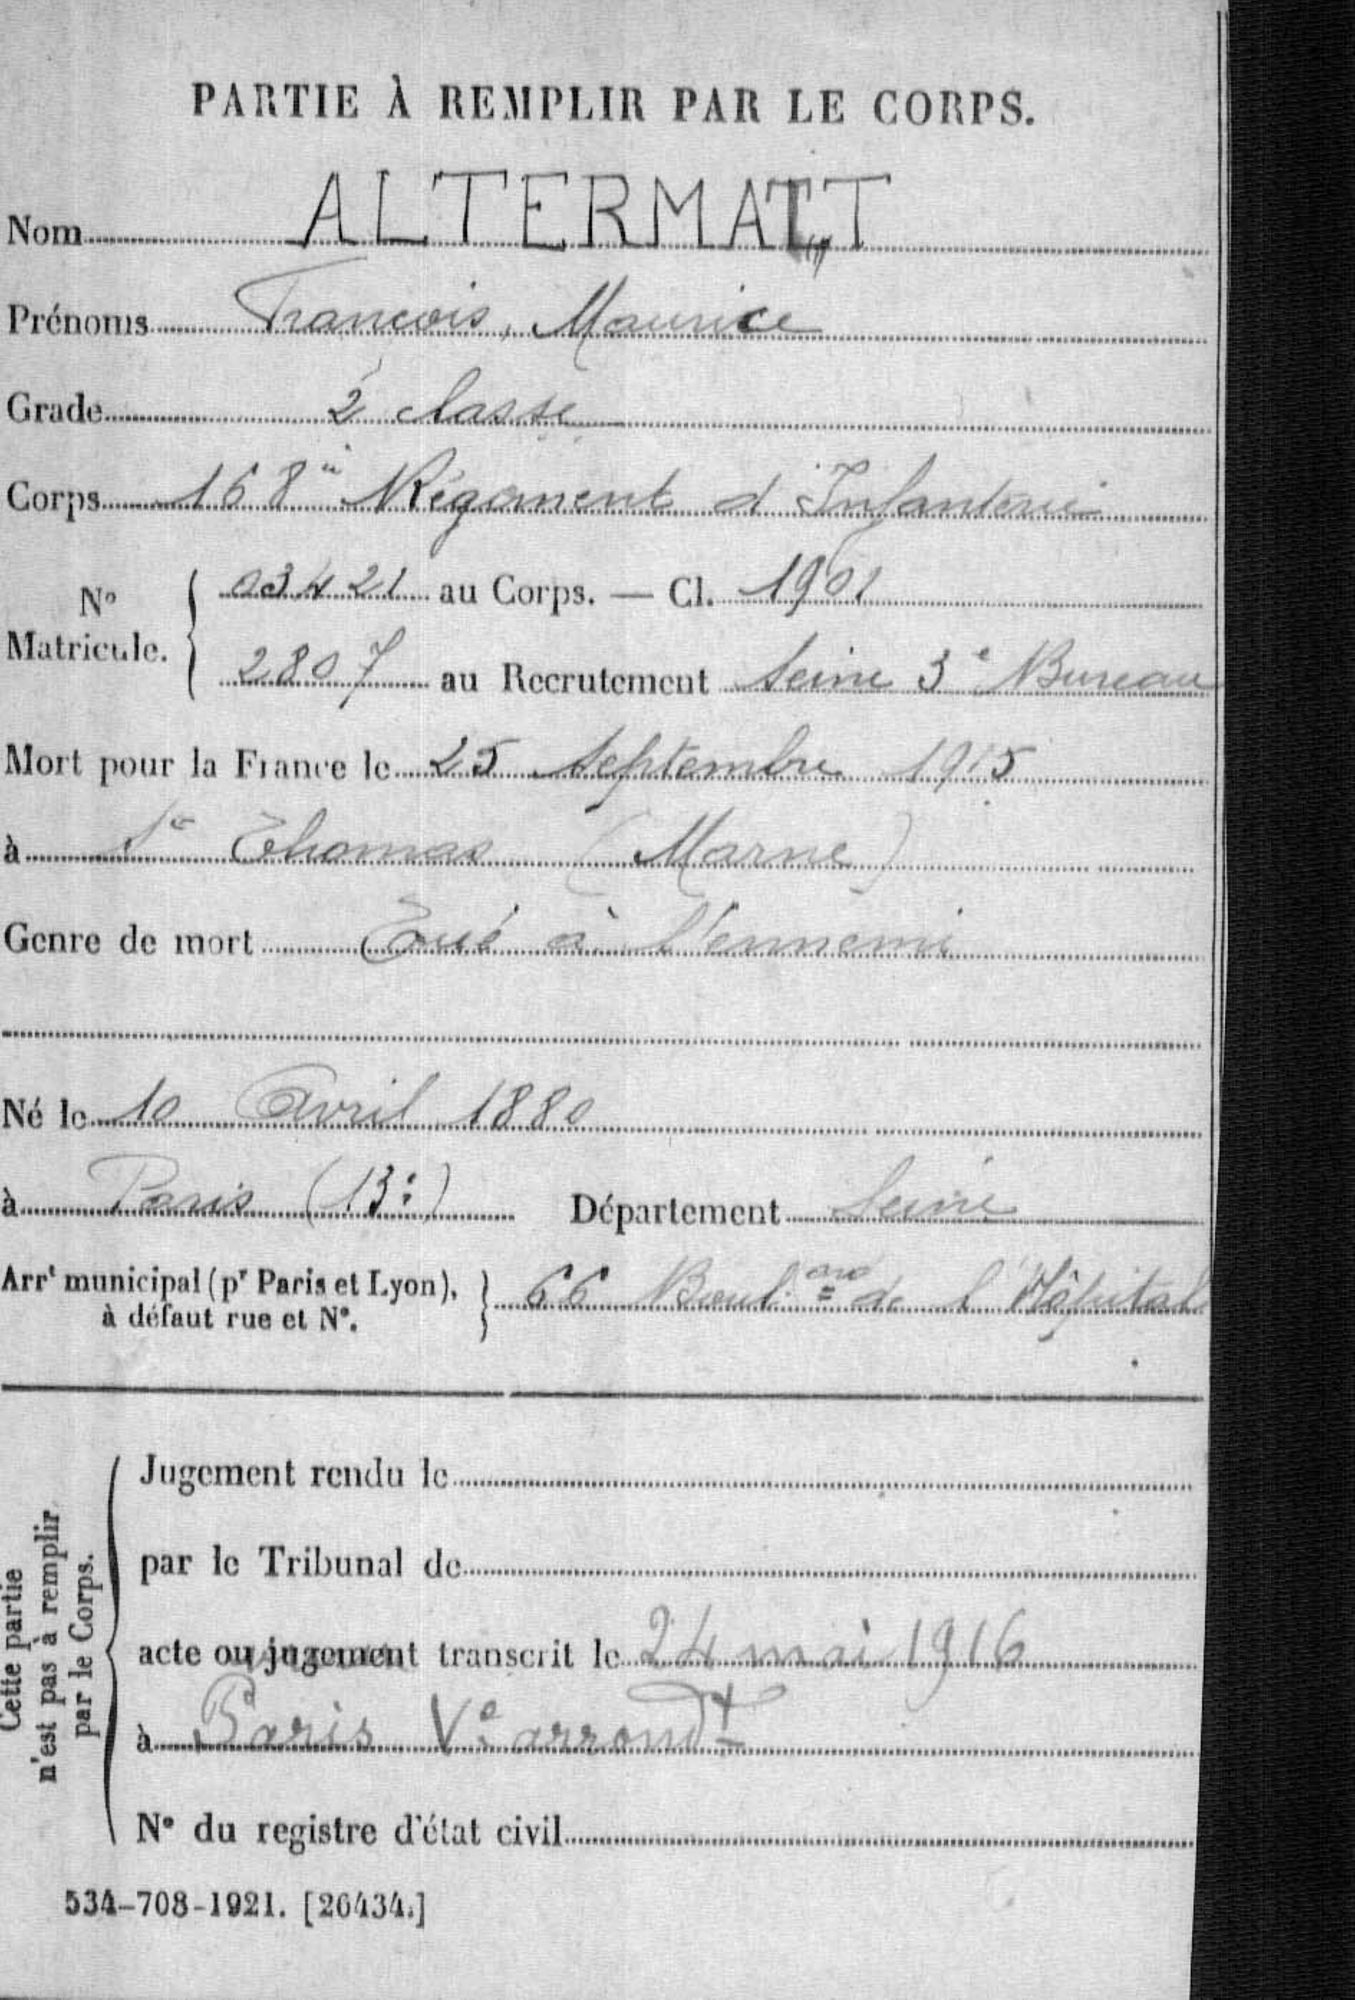 PARTIE À REMPLIR PAR LE CORPS.
Nom ALTERMATT
Prénoms François, Maurice
Grade 2e classe
Corps 168e Régiment d'Infanterie
N° Matricule. { 03421 au Corps. — Cl. 1901
2807 au Recrutement Seine 3e Bureau
Mort pour la France le 25 Septembre 1915
à St Thomas (Marne)
Genre de mort Tué à l'ennemi
Né le 10 Avril 1880
à Paris (13e) Département Seine
Arrt municipal (pr Paris et Lyon), à défaut rue et N°. } 66 Boulard de l'Hôpital
Cette partie n'est pas à remplir par le Corps.
Jugement rendu le
par le Tribunal de
acte ou jugement transcrit le 24 mai 1916
à Paris Ve arrondt
N° du registre d'état civil
534-708-1921. [26434.]